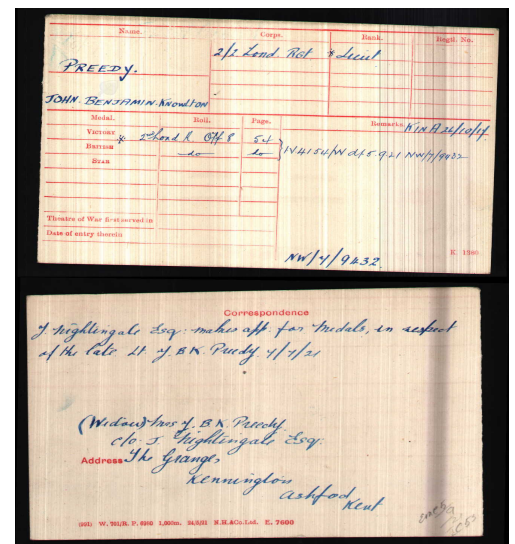 Name. Corps. Rank. Regtl. No.
2/2 Lond. Rgt * Lieut
PREEDY.
JOHN. BENJAMIN. KNOWLTON
Medal. Roll. Page. Remarks. K in A 26/10/17
VICTORY * 2nd Lond R Off 8 54
BRITISH do do IV4154/W dt 5.9.21 NW/7/9432
STAR
Theatre of War first served in
Date of entry therein
NW/7/9432. K. 1380
Correspondence
J. Nightingale Esq: makes app. for medals, in respect
of the late Lt J. B K. Preedy 4/7/21
(Widow) Mrs J. B K. Preedy
c/o. J. Nightingale Esq.
Address The Grange,
Kennington
Ashford
Kent
E. 7690